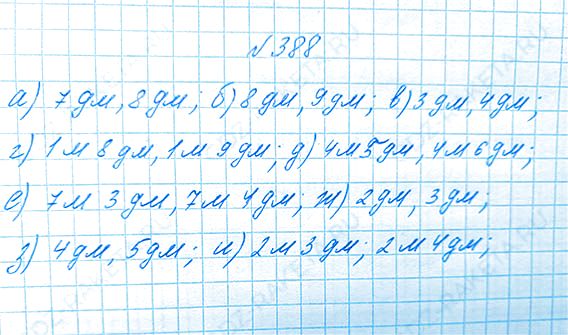 №388
а) 7 дм, 8 дм; б) 8 дм, 9 дм; в) 3 дм, 4 дм;
г) 1 м 8 дм, 1 м 9 дм; д) 4 м 5 дм, 4 м 6 дм;
е) 7 м 3 дм, 7 м 4 дм; ж) 2 дм, 3 дм;
з) 4 дм, 5 дм; и) 2 м 3 дм; 2 м 4 дм;